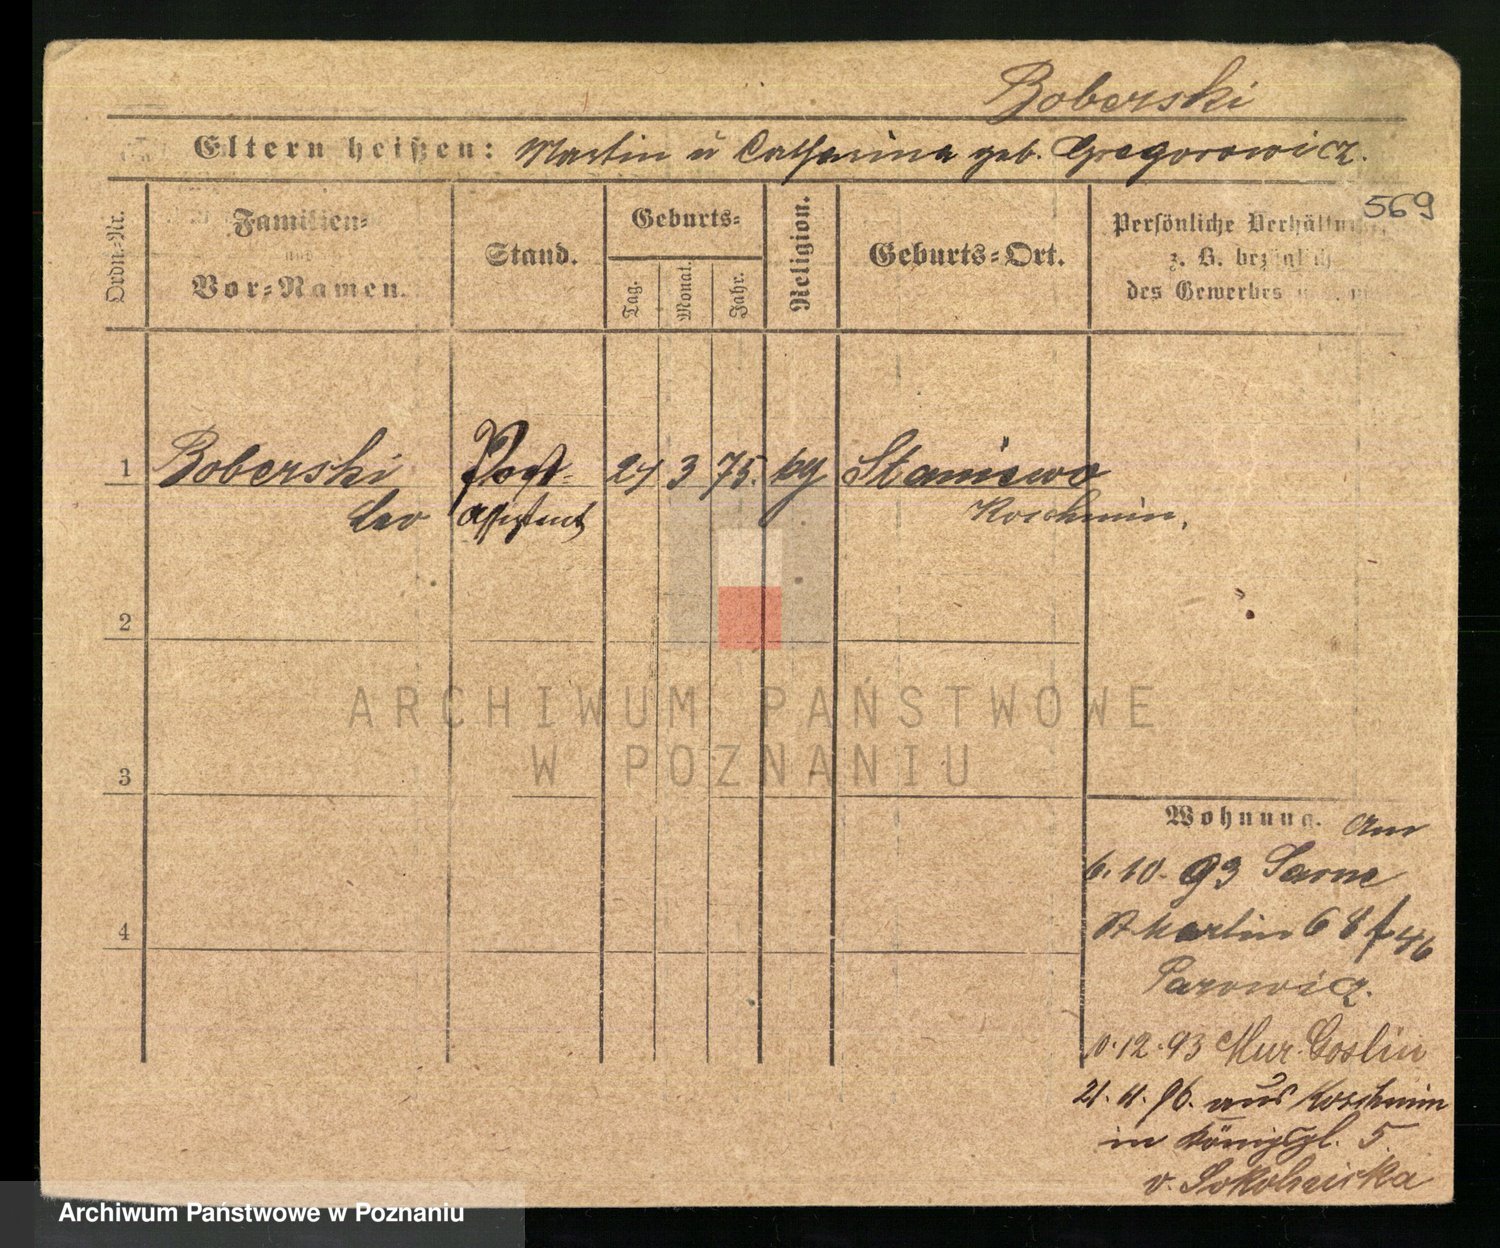 Boberski
Eltern heißen: Martin u Catharina geb. Gregorowicz.
569
Ordn.-Nr.
Familien-
und
Vor-Namen.
Stand.
Geburts-
Tag.
Monat.
Jahr.
Religion.
Geburts-Ort.
Persönliche Verhältn
z. B. bezüglich
des Gewerbes
1 Boberski Post- 24 3 75. kg Staniewo
Leo Assistent Koschmin.
2
3
4
Wohnung. Am
6. 10. 93 Sarne
St Martin 68 f 46
Parowicz.
10. 12. 93 Mur. Goslin
21. 11. 96. aus Koschmin
in Königspl. 5
v. Sokolnicka
ARCHIWUM PAŃSTWOWE
W POZNANIU
Archiwum Państwowe w Poznaniu